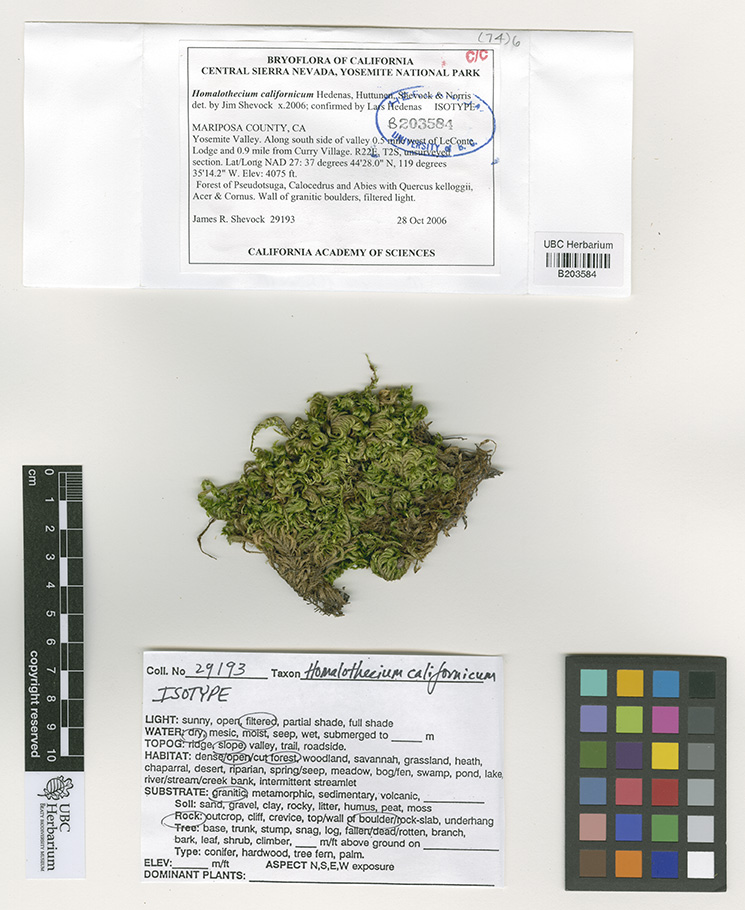 (74)6
C/C
BRYOFLORA OF CALIFORNIA
CENTRAL SIERRA NEVADA, YOSEMITE NATIONAL PARK
Homalothecium californicum Hedenas, Huttunen, Shevock & Norris
det. by Jim Shevock x.2006; confirmed by Lars Hedenas ISOTYPE
B203584
UNIVERSITY of B. C.
MARIPOSA COUNTY, CA
Yosemite Valley. Along south side of valley 0.5 mile west of LeConte
Lodge and 0.9 mile from Curry Village. R22E, T2S, unsurveyed
section. Lat/Long NAD 27: 37 degrees 44'28.0" N, 119 degrees
35'14.2" W. Elev: 4075 ft.
Forest of Pseudotsuga, Calocedrus and Abies with Quercus kelloggii,
Acer & Cornus. Wall of granitic boulders, filtered light.
James R. Shevock 29193 28 Oct 2006
CALIFORNIA ACADEMY OF SCIENCES
UBC Herbarium
B203584
cm
0 1 2 3 4 5 6 7 8 9 10
copyright reserved
UBC
Herbarium
BEATY BIODIVERSITY MUSEUM
Coll. No 29193 Taxon Homalothecium californicum
ISOTYPE
LIGHT: sunny, open, filtered, partial shade, full shade
WATER: dry, mesic, moist, seep, wet, submerged to _____ m
TOPOG: ridge, slope, valley, trail, roadside.
HABITAT: dense/open/cut forest, woodland, savannah, grassland, heath,
chaparral, desert, riparian, spring/seep, meadow, bog/fen, swamp, pond, lake,
river/stream/creek bank, intermittent streamlet
SUBSTRATE: granitic, metamorphic, sedimentary, volcanic, __________
Soil: sand, gravel, clay, rocky, litter, humus, peat, moss
Rock: outcrop, cliff, crevice, top/wall of boulder/rock-slab, underhang
Tree: base, trunk, stump, snag, log, fallen/dead/rotten, branch,
bark, leaf, shrub, climber, ___ m/ft above ground on __________
Type: conifer, hardwood, tree fern, palm.
ELEV:_____ m/ft ASPECT N,S,E,W exposure
DOMINANT PLANTS: __________